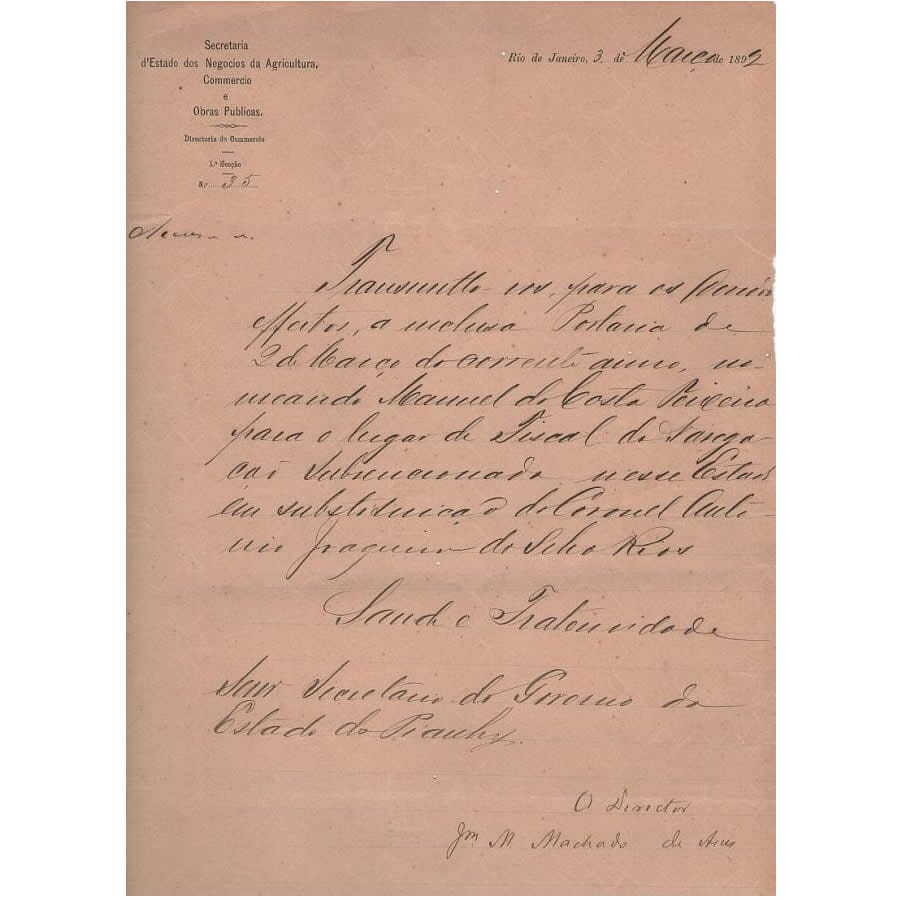 Secretaria
d'Estado dos Negocios da Agricultura,
Commercio
e
Obras Publicas.
Directoria do Commercio
1.ª Secção
N.º 35
Rio de Janeiro, 3 de Março de 1892
Transmitto-vos, para os devidos
effeitos, a inclusa Portaria de
2 de Março do corrente anno, no-
meando Manuel da Costa
para o lugar de Fiscal da Navega-
ção Subvencionada nesse Estado
em substituição do Coronel Anto-
nio Joaquim da Rios
Saude e Fraternidade
Senr Secretario do Governo do
Estado do Piauhy.
O Director
Jm M. Machado de Assis